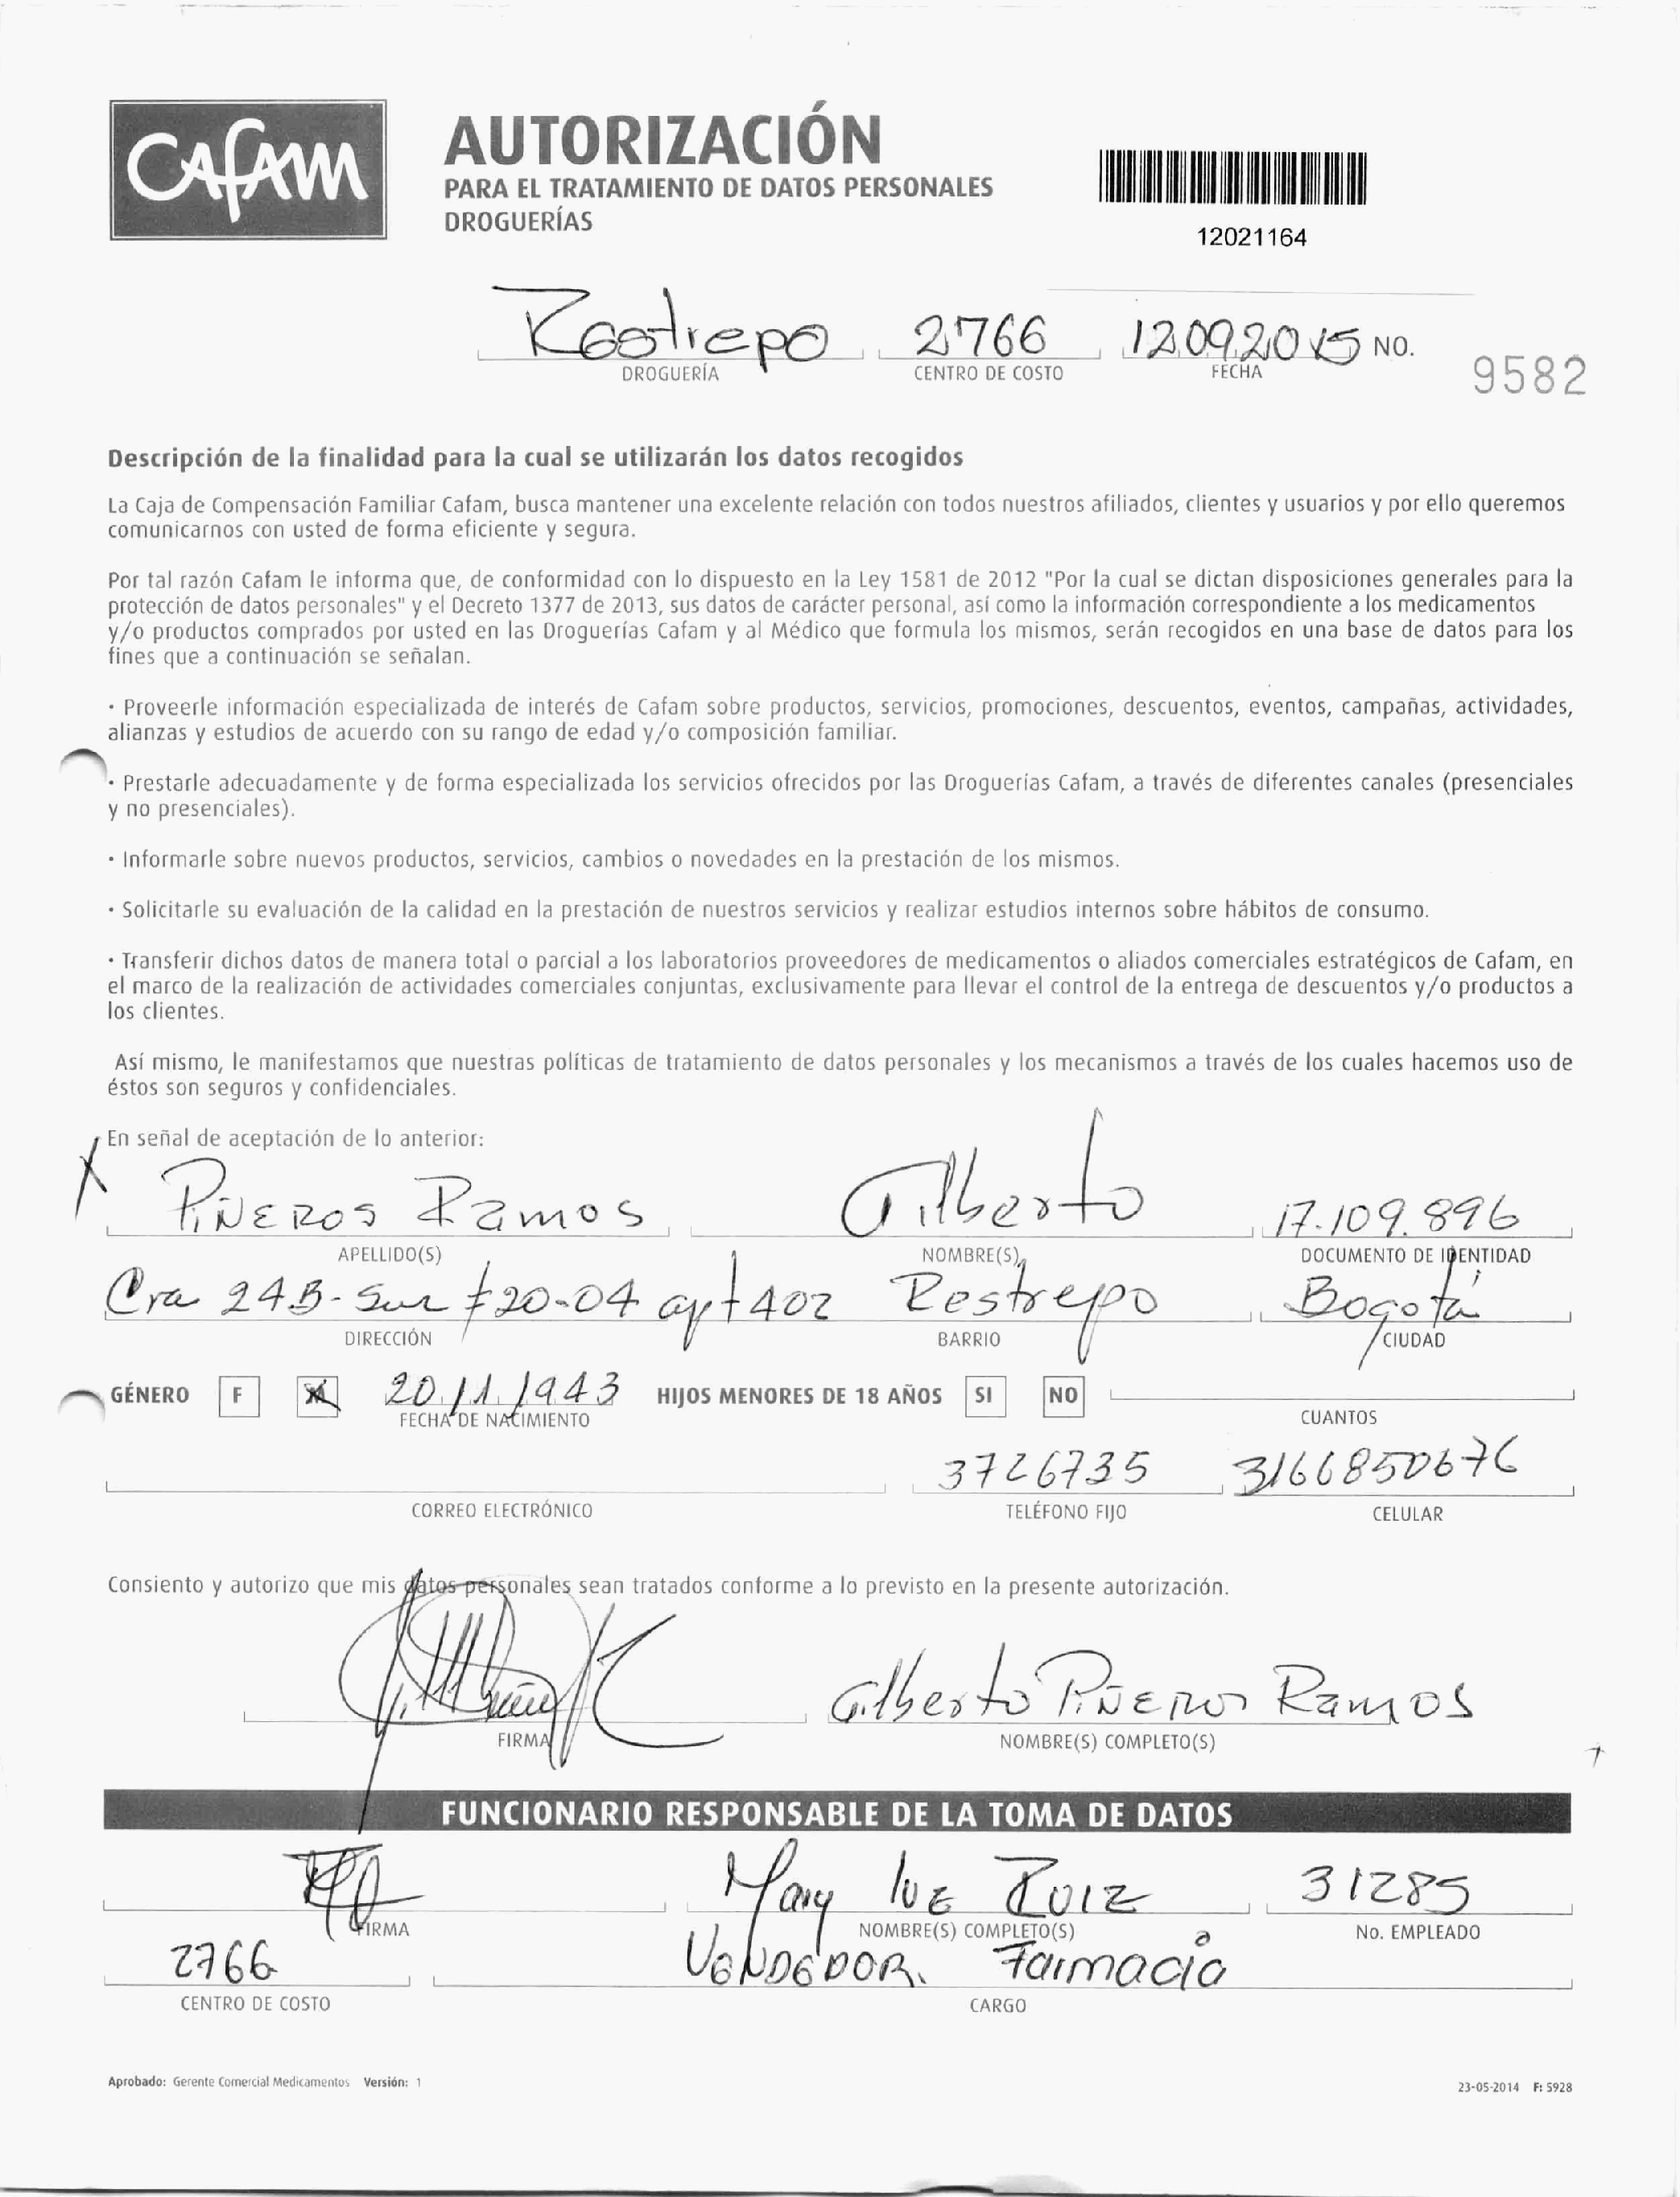 CAFAM
AUTORIZACIÓN
PARA EL TRATAMIENTO DE DATOS PERSONALES
DROGUERÍAS
12021164
Restrepo 2766 12.09.2015 NO. 9582
DROGUERÍA CENTRO DE COSTO FECHA
Descripción de la finalidad para la cual se utilizarán los datos recogidos
La Caja de Compensación Familiar Cafam, busca mantener una excelente relación con todos nuestros afiliados, clientes y usuarios y por ello queremos
comunicarnos con usted de forma eficiente y segura.
Por tal razón Cafam le informa que, de conformidad con lo dispuesto en la Ley 1581 de 2012 "Por la cual se dictan disposiciones generales para la
protección de datos personales" y el Decreto 1377 de 2013, sus datos de carácter personal, así como la información correspondiente a los medicamentos
y/o productos comprados por usted en las Droguerías Cafam y al Médico que formula los mismos, serán recogidos en una base de datos para los
fines que a continuación se señalan.
· Proveerle información especializada de interés de Cafam sobre productos, servicios, promociones, descuentos, eventos, campañas, actividades,
alianzas y estudios de acuerdo con su rango de edad y/o composición familiar.
· Prestarle adecuadamente y de forma especializada los servicios ofrecidos por las Droguerías Cafam, a través de diferentes canales (presenciales
y no presenciales).
· Informarle sobre nuevos productos, servicios, cambios o novedades en la prestación de los mismos.
· Solicitarle su evaluación de la calidad en la prestación de nuestros servicios y realizar estudios internos sobre hábitos de consumo.
· Transferir dichos datos de manera total o parcial a los laboratorios proveedores de medicamentos o aliados comerciales estratégicos de Cafam, en
el marco de la realización de actividades comerciales conjuntas, exclusivamente para llevar el control de la entrega de descuentos y/o productos a
los clientes.
Así mismo, le manifestamos que nuestras políticas de tratamiento de datos personales y los mecanismos a través de los cuales hacemos uso de
éstos son seguros y confidenciales.
En señal de aceptación de lo anterior:
X PiÑEROS Ramos Gilberto 17.109.896
APELLIDO(S) NOMBRE(S) DOCUMENTO DE IDENTIDAD
Cra 24B-Sur #20-04 apt 402 Restrepo Bogotá
DIRECCIÓN BARRIO CIUDAD
GÉNERO F 20.11.1943 HIJOS MENORES DE 18 AÑOS SI NO
FECHA DE NACIMIENTO CUANTOS
3726735 3166850676
CORREO ELECTRÓNICO TELÉFONO FIJO CELULAR
Consiento y autorizo que mis datos personales sean tratados conforme a lo previsto en la presente autorización.
Gilberto PiÑEROS Ramos
FIRMA NOMBRE(S) COMPLETO(S)
FUNCIONARIO RESPONSABLE DE LA TOMA DE DATOS
Mary luz Ruiz 31285
FIRMA NOMBRE(S) COMPLETO(S) No. EMPLEADO
2766 VENDEDOR. Farmacia
CENTRO DE COSTO CARGO
Aprobado: Gerente Comercial Medicamentos Versión: 1 23-05-2014 F: 5928